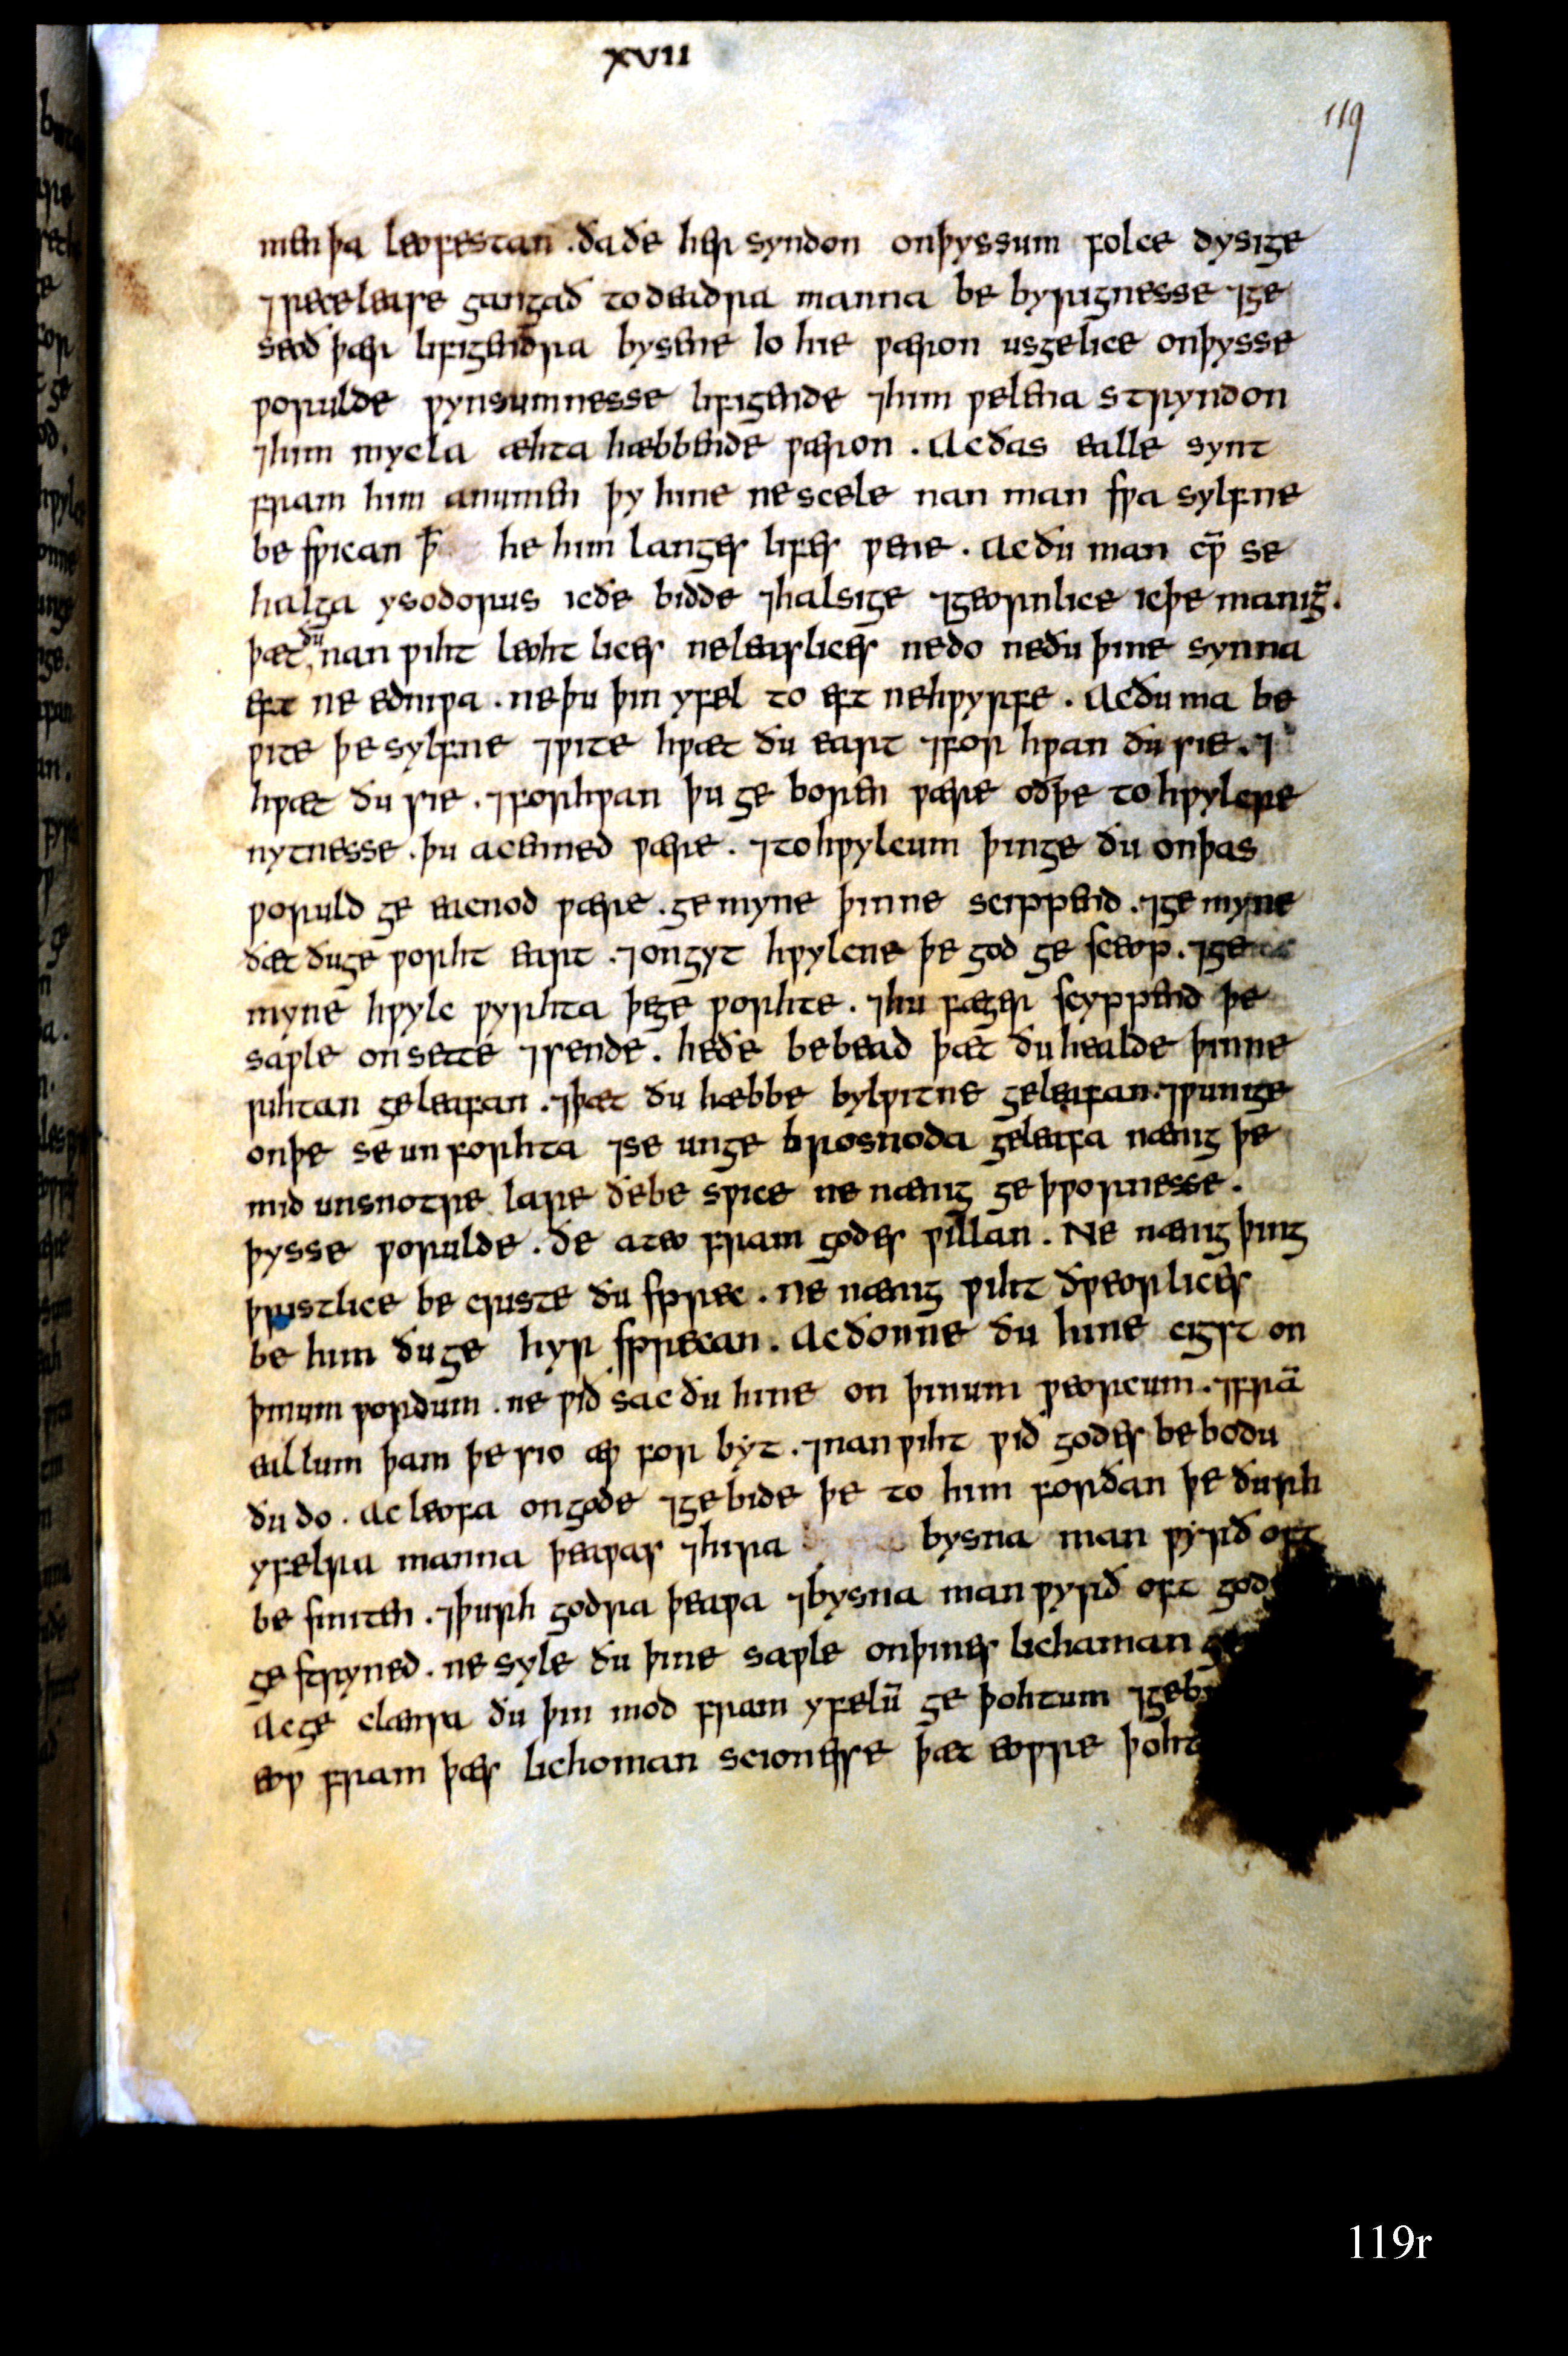 xvii
119
men þa leofestan . ða ðe her syndon onþyssum folce dysige
⁊ recelease gangað todeadra manna be byrignesse ⁊ge
seoð þær lifigendra bysene lo hie wæron usgelice onþysse
worulde wynsumnesse lifigende ⁊him welena stryndon
⁊him mycla æhta hæbbende wæron . Acðas ealle synt
fram him anumen þy hine nescele nan man swa sylfne
be swican þ̄ he him langes lifes wene . Ac ðu man cw̄ se
halga ysodorus icðe bidde ⁊halsige ⁊geornlice icþe manig̃ .
þæt ðu nan wiht leoht lices neleaslices nedo neðu þine synna
eft ne edniwa . neþu þin yfel to eft nehwyrfe . Acðu ma be
wite þe sylfne ⁊wite hwæt ðu eart ⁊for hwan ðu sie . ⁊
hwæt ðu sie . ⁊forhwan þu ge boren wære oðþe to hwylcere
nytnesse . þu acenned wære . ⁊tohwylcum þinge ðu onþas
woruld ge eacnod wære . gemyne þinne scippend . ⁊ge myne
ðæt ðuge worht eart . ⁊ongyt hwylcne þe god ge sceop . ⁊ge
myne hwylc wyrhta þege worhte . ⁊hu fæger scyppend þe
saple onsette ⁊sende . heðe bebead þæt ðu healde þinne
rihtan geleafan . ⁊þæt ðu hæbbe bylwitne geleafan . ⁊wunige
onþe se un forhta ⁊se unge brosnoda geleafa nænig þe
mid unsnotre lare ðebe swice ne nænig ge þwornesse .
þysse worulde . ðe ateo fram godes willan . Ne nænig þing
þristlice be criste ðu sprec . ne nænig wiht ðweorlices
be him ðuge hyr sprecan . Acðonne ðu hine cigst on
þinum wordum . ne wið sac ðu hine on þinum weorcum . ⁊frā
eallum þam þe sio æw for byt . ⁊nanwiht wið godes bebodu
ðu do . Ac leofa ongode ⁊gebide þe to him forðan þe ðurh
yfelra manna þeawas ⁊hira bysna man wyrð oft
be smiten . ⁊þurh godra þeawa ⁊bysna man wyrð oft god
ge stryned . ne syle ðu þine saple onþines lichaman
Acge clænsa ðu þin mod fram yfelū ge þohtum ⁊geb
eow fram þæs lichoman scionesse þæt eowre þoht
119r